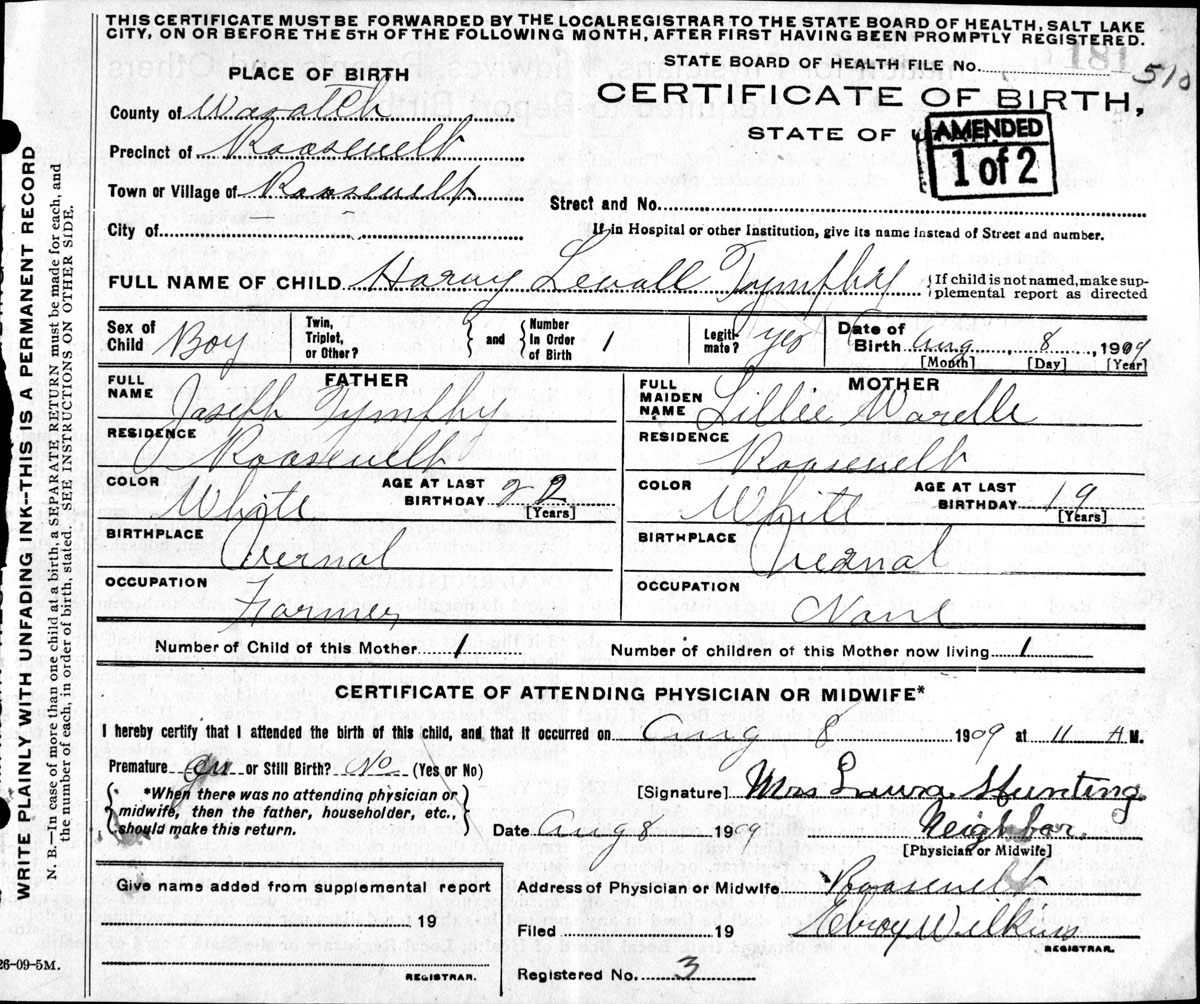 THIS CERTIFICATE MUST BE FORWARDED BY THE LOCAL REGISTRAR TO THE STATE BOARD OF HEALTH, SALT LAKE
CITY, ON OR BEFORE THE 5TH OF THE FOLLOWING MONTH, AFTER FIRST HAVING BEEN PROMPTLY REGISTERED.
PLACE OF BIRTH
STATE BOARD OF HEALTH FILE No.
CERTIFICATE OF BIRTH,
County of Wasatch
STATE OF
AMENDED
1 of 2
Precinct of Roosevelt
Town or Village of Roosevelt
Street and No.
City of
If in Hospital or other Institution, give its name instead of Street and number.
FULL NAME OF CHILD Harvy Levall Tymphy
{If child is not named, make sup-
plemental report as directed
Sex of Child Boy
Twin, Triplet, or Other?
and
Number In Order of Birth 1
Legiti-mate? yes
Date of Birth Aug 8, 1909
[Month] [Day] [Year]
FATHER
FULL NAME Joseph Tymphy
RESIDENCE Roosevelt
COLOR White
AGE AT LAST BIRTHDAY 22 [Years]
BIRTHPLACE Vernal
OCCUPATION Farmer
MOTHER
FULL MAIDEN NAME Lillie Warelle
RESIDENCE Roosevelt
COLOR White
AGE AT LAST BIRTHDAY 19 [Years]
BIRTHPLACE Vernal
OCCUPATION None
Number of Child of this Mother 1
Number of children of this Mother now living 1
CERTIFICATE OF ATTENDING PHYSICIAN OR MIDWIFE*
I hereby certify that I attended the birth of this child, and that it occurred on Aug 8 1909 at 11 A M.
Premature or Still Birth? No (Yes or No)
*When there was no attending physician or
midwife, then the father, householder, etc.,
should make this return.
[Signature] Mrs Laura Hunting
Date Aug 8 1909
Neighbor.
[Physician or Midwife]
Give name added from supplemental report
19
REGISTRAR.
Address of Physician or Midwife Roosevelt
Filed 19 Elroy Wilkins
REGISTRAR.
Registered No. 3
26-09-5M.
WRITE PLAINLY WITH UNFADING INK--THIS IS A PERMANENT RECORD
N. B.—In case of more than one child at a birth, a SEPARATE RETURN must be made for each, and
the number of each, in order of birth, stated. SEE INSTRUCTIONS ON OTHER SIDE.